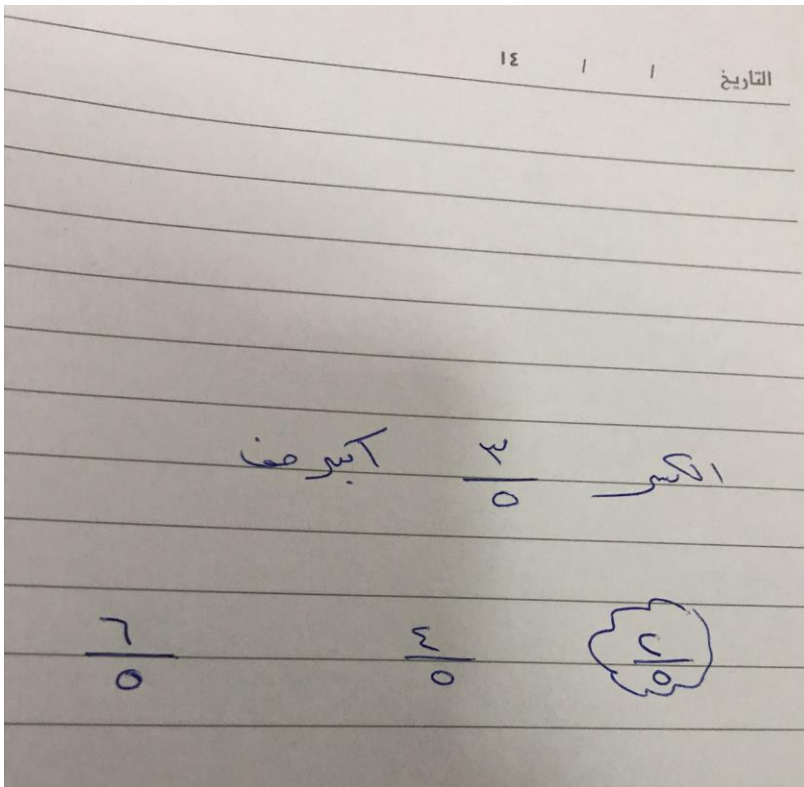 التاريخ / / ١٤
الكسر ٣/٥ أكبر من
٢/٥ ٤/٥ ٦/٥